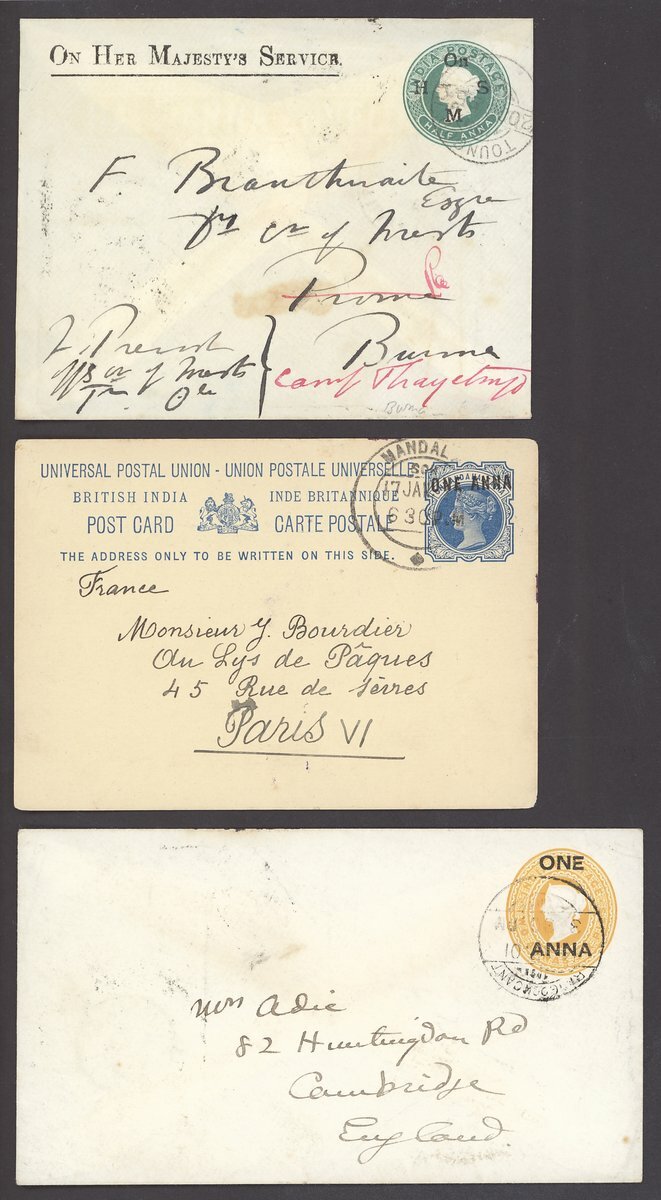 ON HER MAJESTY'S SERVICE.
INDIA POSTAGE
On
H S
M
HALF ANNA
TOUN
F Branthwaite
Esqre
of
Prome
Burma
Camp Thayetmyo
Burma
UNIVERSAL POSTAL UNION - UNION POSTALE UNIVERSELLE
BRITISH INDIA INDE BRITANNIQUE
POST CARD CARTE POSTALE
THE ADDRESS ONLY TO BE WRITTEN ON THIS SIDE.
MANDAL
17 JA
6 30 P.M
ONE ANNA
France
Monsieur J. Bourdier
Au Lys de Pâques
45 Rue de Sèvres
Paris VI
ONE
ANNA
10
Mrs Adie
82 Huntingdon Rd
Cambridge
England.